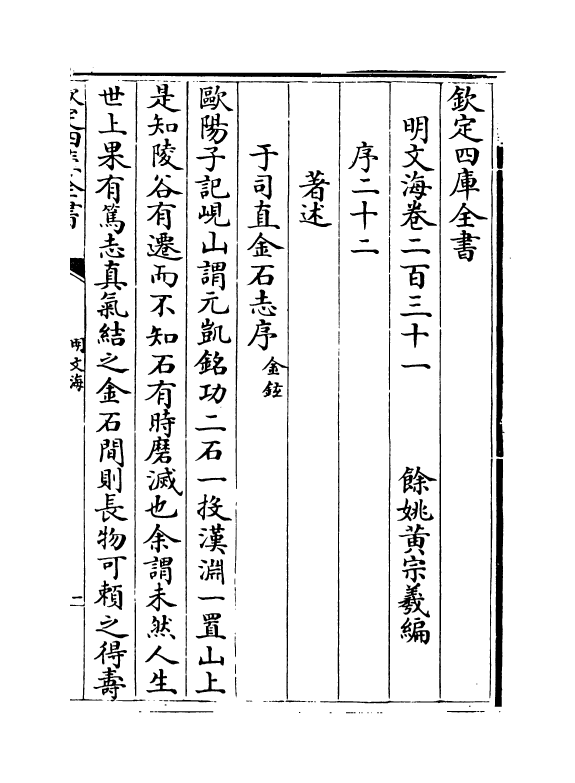 欽定四庫全書
明文海卷二百三十一　　　餘姚黃宗羲編
序二十二
著述
于司直金石志序金鉉
歐陽子記峴山謂元凱銘功二石一投漢淵一置山上
是知陵谷有遷而不知石有時磨滅也余謂未然人生
世上果有篤志真氣結之金石間則長物可賴之得壽
欽定四庫全書
明文海